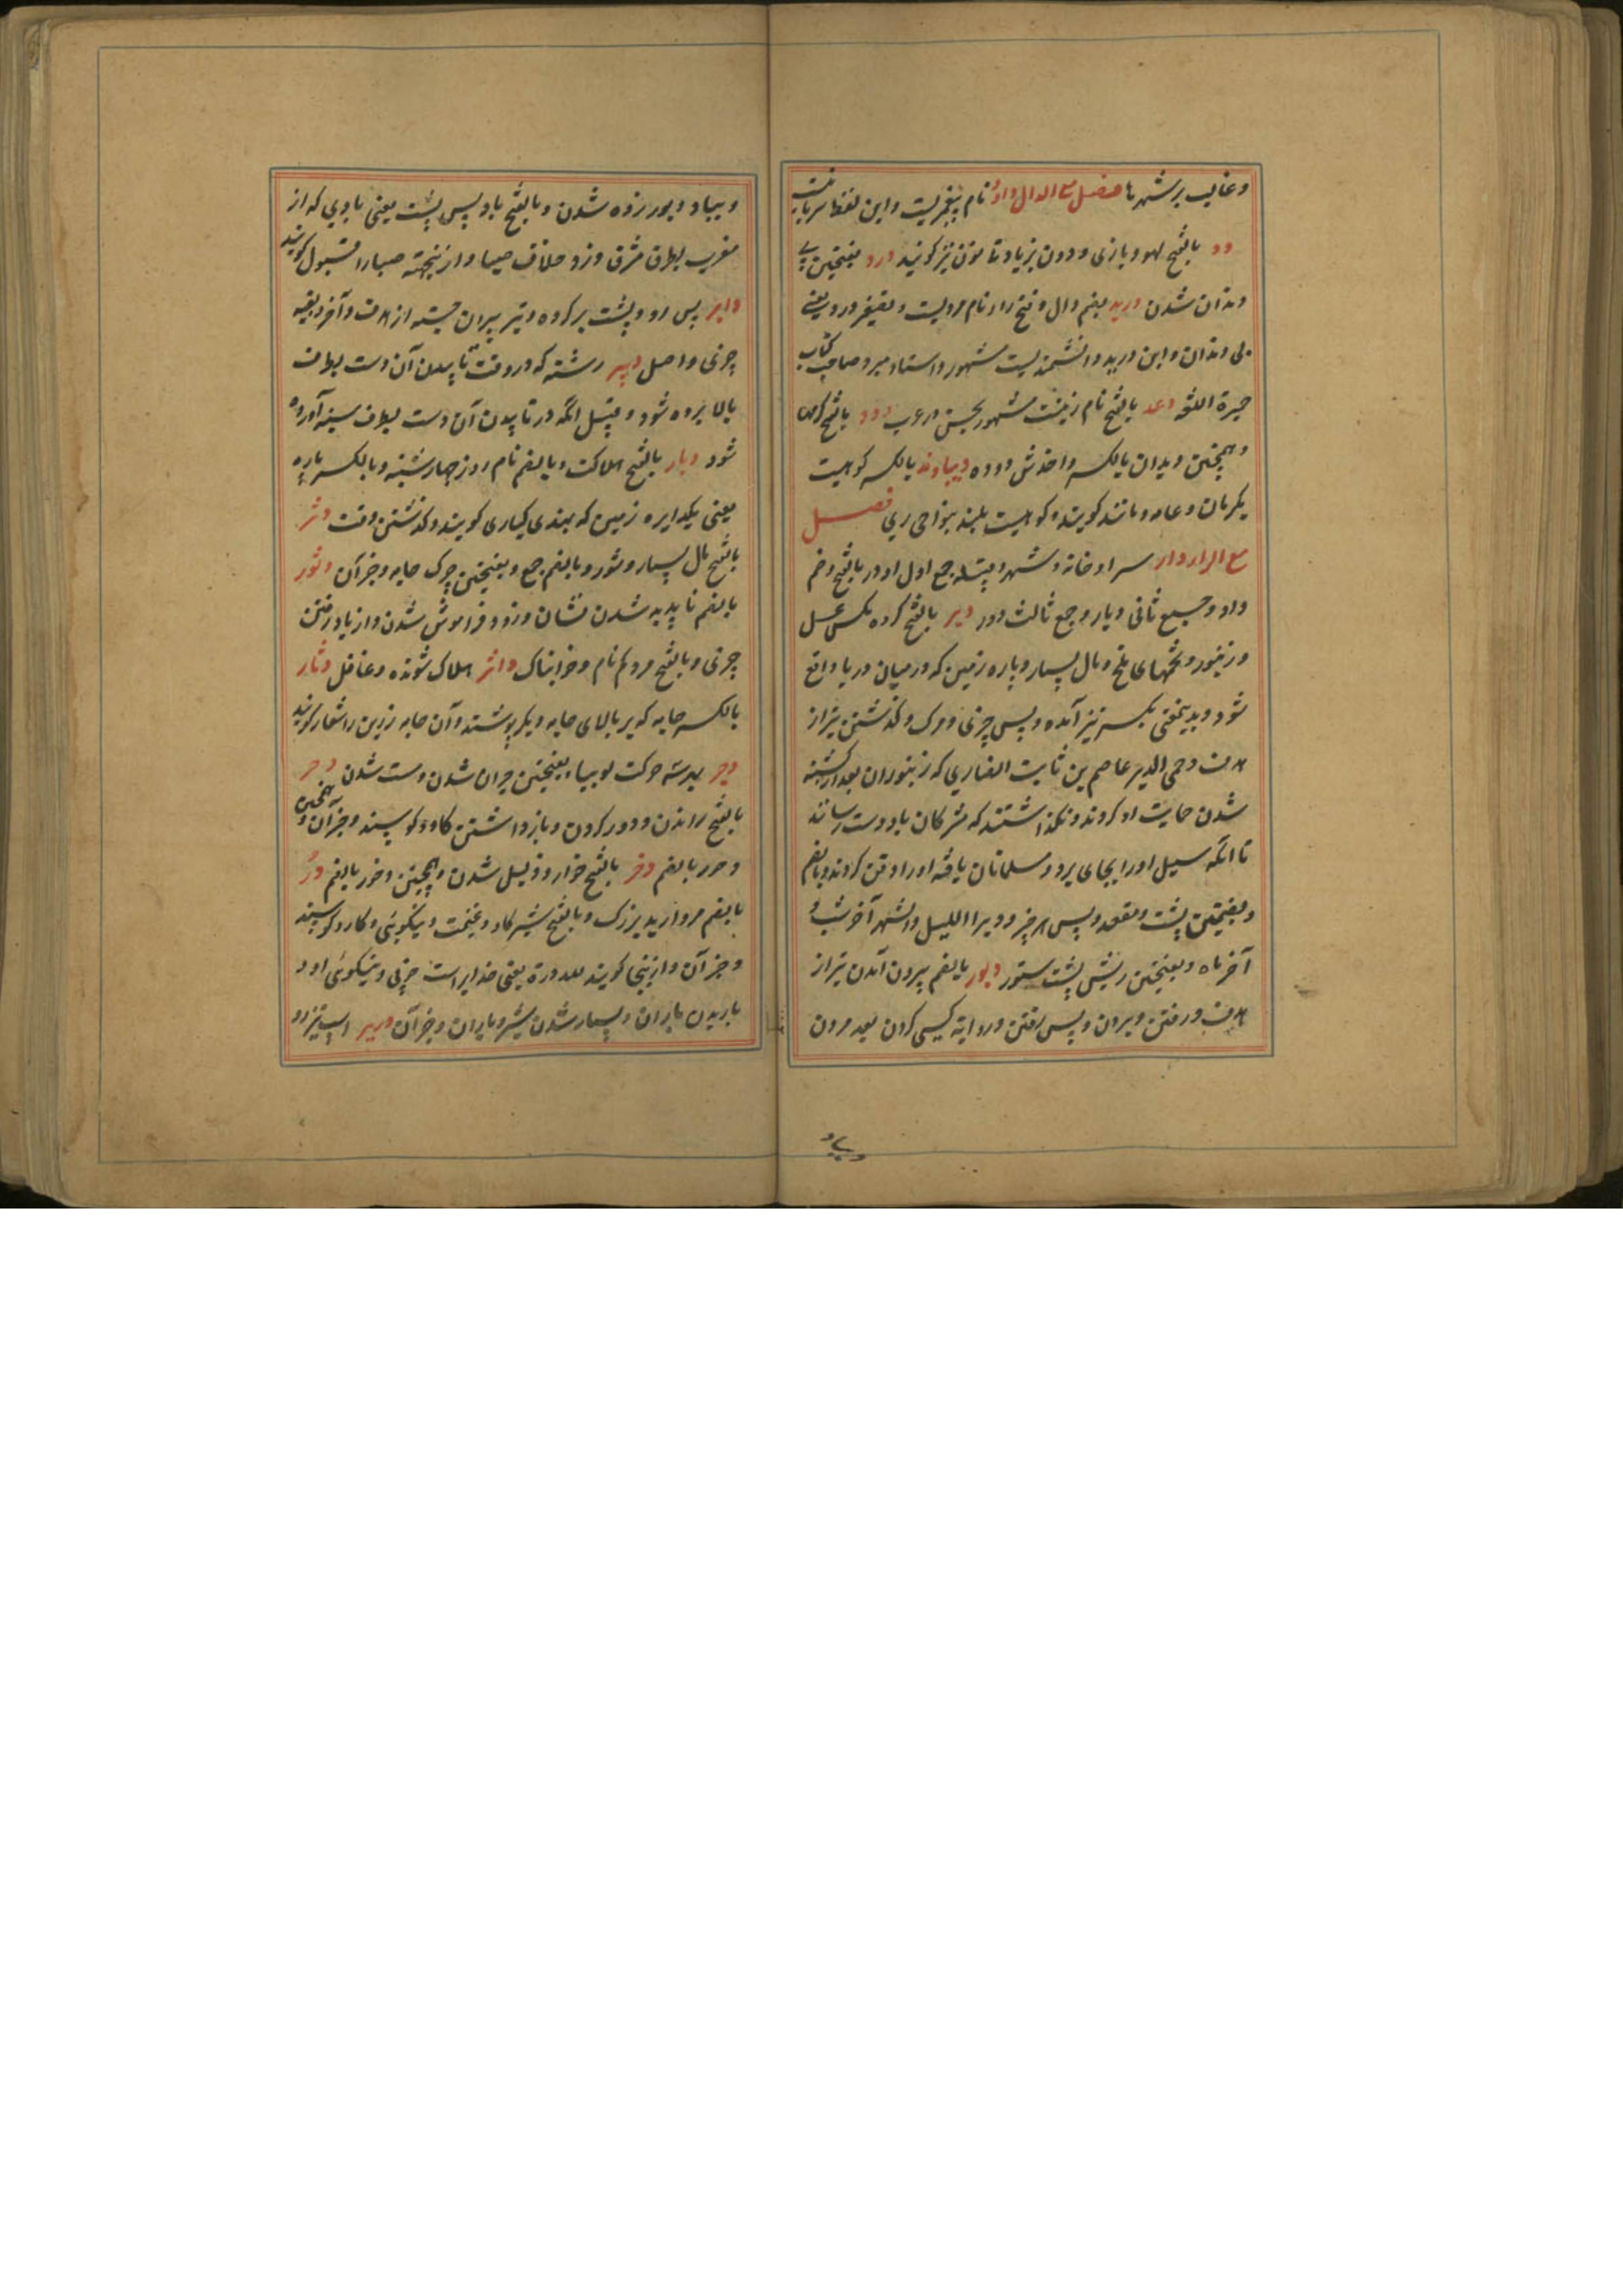 وغالب برشهرها فصل مع الدال داود نام پیغمبریست واین لفظ سریانیست
دد بالفتح لهو وبازی وددن بزیادتا نون نیز کویند درد بفتحتین بی
دندان شدن درید بضم دال وفتح را نام مردیست وتصغیر درد یعنی
بی دندان وابن درید دانشمندیست مشهور واستاد میرد صاحب کتاب
جمهرة اللغه دعد بالفتح نام زنیست مشهور بحسن در عرب دود بالفتح کرمها
وهمچنین دیدان بالکسر دباوند بالکسر کوهیست
بکرمان وعامه دماوند کویند وکوهیست بلند بنواحی ری فصل
مع الراء دار سرا وخانه وشهر وقبیله جمع اول ادور بالفتح وضم
واو وجمع ثانی دیار وجمع ثالث دور دبر بالفتح کروه مکس عسل
وزنبور وتخمهای ملخ ومال بسیار وپاره زمین که در میان دریا واقع
شود وبدینمعنی بکسر نیز آمده وپس چیزی ومرک وکذشتن تیر از
هدف وحمی الدبر عاصم بن ثابت انصاری که زنبوران بعد از کشته
شدن حمایت او کردند ونکذاشتند که مشرکان باو دست رسانند
تا آنکه سیل او را بجای برد ومسلمانان یافته او را دفن کردند وبالضم
وبضمتین پشت ومقعد وپس هر چیز ودبر اللیل والشهر آخر شب و
آخر ماه وبفتحتین ریش پشت ستور دبور بالضم بیرون آمدن تیر از
هدف ورفتن وبردن وپس رفتن وروایة کسی کردن بعد مردن
وبیاد
وبیاد دبور زده شدن وبالفتح باد پس پشت یعنی بادی که از
مغرب بطرف مشرق وزد خلاف صبا واز ینجهته صبا را قبول کویند
دابر پس رو وپشت بر کرده وتیر بیرون جسته از هدف وآخر وبقیه
چیزی واصل دبیر رشته که در وقت تابیدن آن دست بطرف
بالا برده شود وقبیل آنکه در تابیدن آن دست بطرف سینه آورده
شود دبار بالفتح هلاکت وبالضم نام روز چهارشنبه وبالکسر پاره
یعنی یکدایره زمین که بهندی کیاری کویند وکذشتن وقت دثر
بالفتح مال بسیار ودثور وبالضم جمع وبفتحتین چرک جامه وجز آن دثور
بالضم ناپدید شدن نشان وزود فراموش شدن واز یاد رفتن
چیزی وبالفتح مردکم نام وخوابناک داثر هلاک شونده وغافل دثار
بالکسر جامه که بر بالای جامه دیکر پوشند وآن جامه زیرین را شعار کویند
دجر بهر سه حرکت لوبیا وبفتحتین حیران شدن ومست شدن دحر
بالفتح راندن ودور کردن وبازداشتن کاو وکوسپند وجز آن وهمچنین
دحور بالضم دخر بالفتح خوار وذلیل شدن وهمچنین دخور بالضم در
بالضم مروارید بزرک وبالفتح شیر کاو وغنیمت ونیکوئی وکار وکوسپند
وجز آن وازینجا کویند لله دره یعنی خدایراست خوبی ونیکوئی او و
باریدن باران وبسیار شدن شیر وباران وجز آن دریر اسپ تیزرو